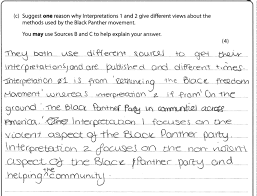 (c) Suggest one reason why Interpretations 1 and 2 give different views about the
methods used by the Black Panther movement.
You may use Sources B and C to help explain your answer.
(4)
They both use different sources to get their
interpretations, and are published and different times.
Interpretation #1 is from 'Rethinking the Black Freedom
Movement' whereas interpretation 2 is from 'On the
ground: The Black Panther Party in communities across
America.' Interpretation 1 focuses on the
violent aspect of the Black Panther party.
Interpretation 2 focuses on the non-violent
aspect of the Black Panther party and
helping the community.